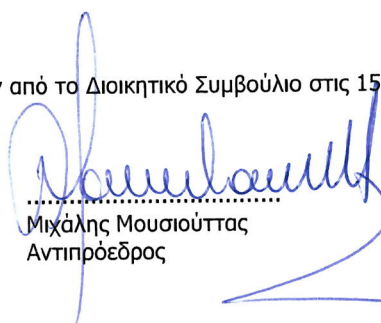 από το Διοικητικό Συμβούλιο στις 15
Μιχάλης Μουσιούττας
Αντιπρόεδρος